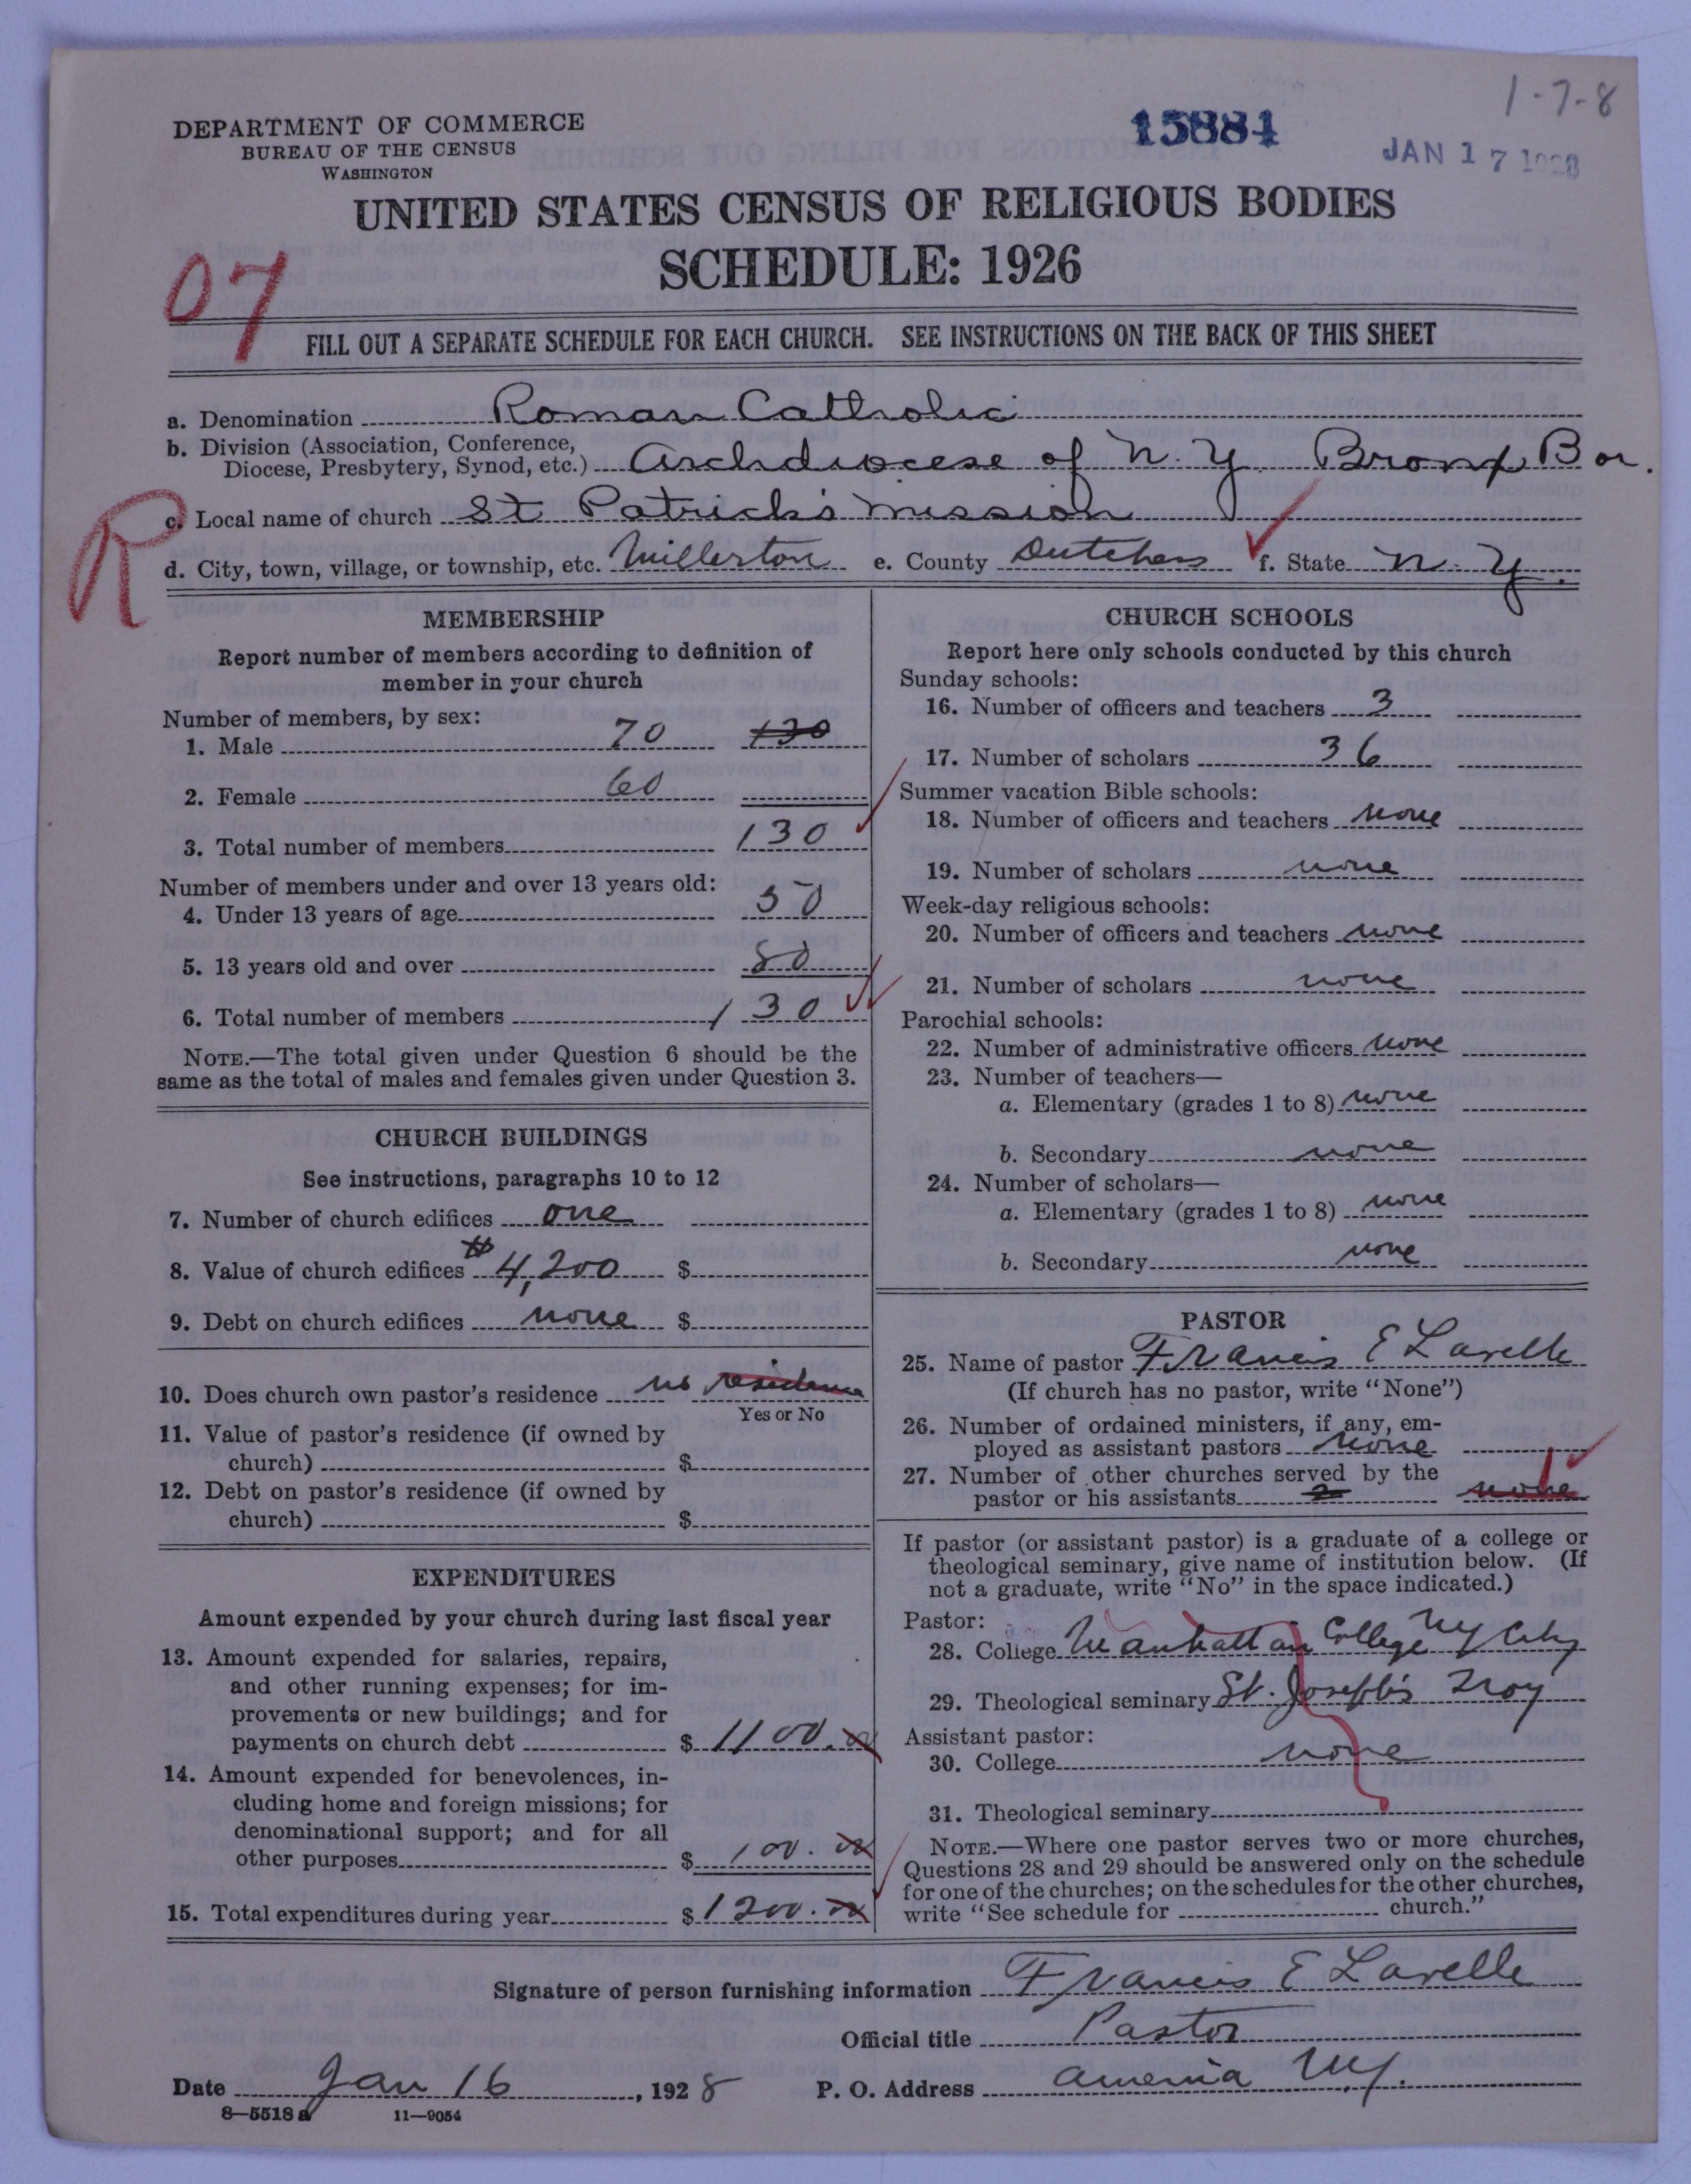 1-7-8
DEPARTMENT OF COMMERCE
BUREAU OF THE CENSUS
WASHINGTON
15884
JAN 17 1928
UNITED STATES CENSUS OF RELIGIOUS BODIES
SCHEDULE: 1926
07
FILL OUT A SEPARATE SCHEDULE FOR EACH CHURCH. SEE INSTRUCTIONS ON THE BACK OF THIS SHEET
a. Denomination Roman Catholic
b. Division (Association, Conference,
Diocese, Presbytery, Synod, etc.) Archdiocese of N. Y. Bronx Bor.
R
c. Local name of church St Patrick's mission
d. City, town, village, or township, etc. Millerton e. County Dutchess f. State N. Y.
MEMBERSHIP
Report number of members according to definition of
member in your church
Number of members, by sex:
1. Male 70 130
2. Female 60
3. Total number of members 130
Number of members under and over 13 years old:
4. Under 13 years of age 50
5. 13 years old and over 80
6. Total number of members 130
NOTE.—The total given under Question 6 should be the
same as the total of males and females given under Question 3.
CHURCH BUILDINGS
See instructions, paragraphs 10 to 12
7. Number of church edifices one
8. Value of church edifices $4,200 $
9. Debt on church edifices none $
10. Does church own pastor's residence no residence
Yes or No
11. Value of pastor's residence (if owned by
church) $
12. Debt on pastor's residence (if owned by
church) $
EXPENDITURES
Amount expended by your church during last fiscal year
13. Amount expended for salaries, repairs,
and other running expenses; for im-
provements or new buildings; and for
payments on church debt $ 1100.00
14. Amount expended for benevolences, in-
cluding home and foreign missions; for
denominational support; and for all
other purposes $ 100.00
15. Total expenditures during year $ 1200.00
CHURCH SCHOOLS
Report here only schools conducted by this church
Sunday schools:
16. Number of officers and teachers 3
17. Number of scholars 36
Summer vacation Bible schools:
18. Number of officers and teachers none
19. Number of scholars none
Week-day religious schools:
20. Number of officers and teachers none
21. Number of scholars none
Parochial schools:
22. Number of administrative officers none
23. Number of teachers—
a. Elementary (grades 1 to 8) none
b. Secondary none
24. Number of scholars—
a. Elementary (grades 1 to 8) none
b. Secondary none
PASTOR
25. Name of pastor Francis E Lavelle
(If church has no pastor, write "None")
26. Number of ordained ministers, if any, em-
ployed as assistant pastors none
27. Number of other churches served by the
pastor or his assistants 2 none 1
If pastor (or assistant pastor) is a graduate of a college or
theological seminary, give name of institution below. (If
not a graduate, write "No" in the space indicated.)
Pastor:
28. College Manhattan College NY City
29. Theological seminary St. Joseph's Troy
Assistant pastor:
30. College none
31. Theological seminary
NOTE.—Where one pastor serves two or more churches,
Questions 28 and 29 should be answered only on the schedule
for one of the churches; on the schedules for the other churches,
write "See schedule for church."
Signature of person furnishing information Francis E Lavelle
Official title Pastor
Date Jan 16, 1928 P. O. Address Amenia N.Y.
8—5518 a 11—9054